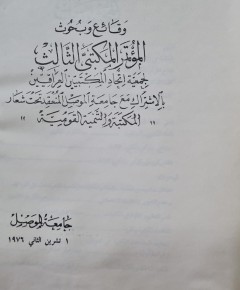 وقائع وبحوث
المؤتمر المكتبي الثالث
لجمعية إتحاد المكتبيين العراقيين
بالاشتراك مع جامعة الموصل المنعقد تحت شعار
" المكتبة والتنمية القومية "
جامعة الموصل
١ تشرين الثاني ١٩٧٦